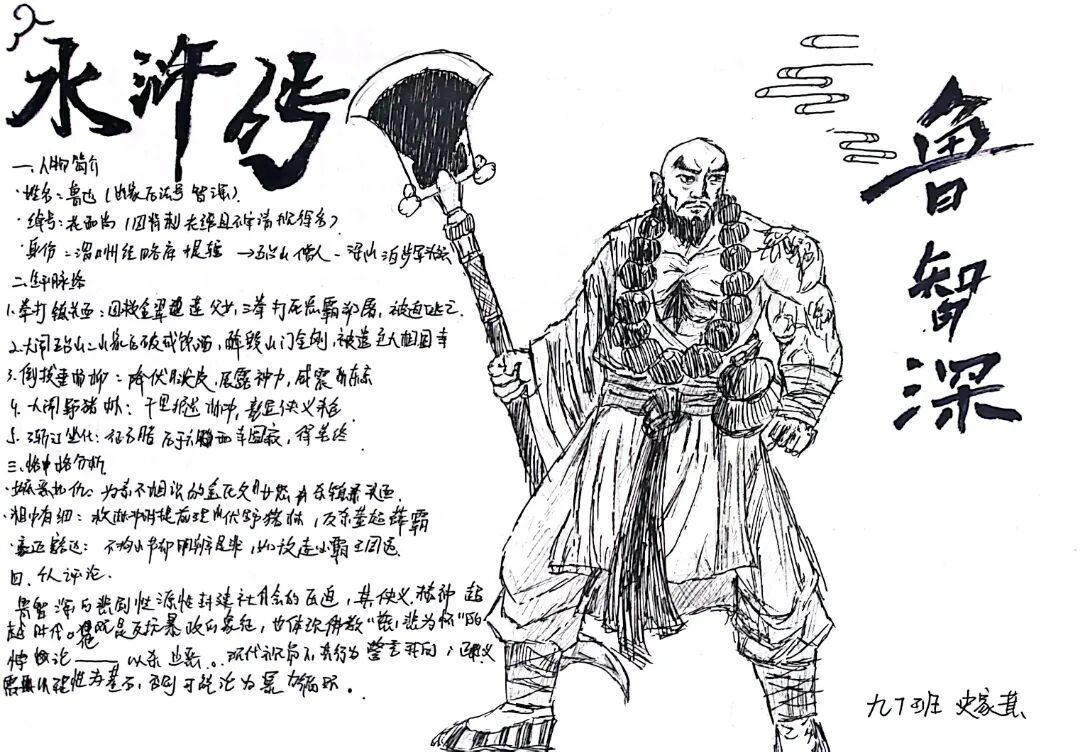 水浒传
鲁智深
一、人物简介
·姓名：鲁达（出家后法号智深）
·绰号：花和尚（因背刺花绣且不守清规得名）
·身份：渭州经略府提辖→五台山僧人→梁山泊步军头领
二、生平脉络
1.拳打镇关西：因救金翠莲父女，三拳打死恶霸郑屠，被迫逃亡
2.大闹五台山：出家后破戒饮酒，醉毁山门金刚，被遣去大相国寺
3.倒拔垂杨柳：降伏泼皮，展露神力，威震东京
4.大闹野猪林：千里护送林冲，彰显侠义本色
5.浙江坐化：征方腊后于六和寺圆寂，得善终
三、性格分析
·嫉恶如仇：为素不相识的金氏父女怒杀镇关西
·粗中有细：救林冲时提前埋伏野猪林，反杀董超薛霸
·豪迈豁达：不拘小节却明辨是非，如放走小霸王周通
四、个人评论
鲁智深的悲剧性源性封建社会的压迫，其侠义精神超
越时代。他既是反抗暴政的象征，也体现佛教“慈悲为怀”的
悖论——以杀止恶。现代社会
需以理性为基石，否则可能沦为暴力循环。
九7班 史家